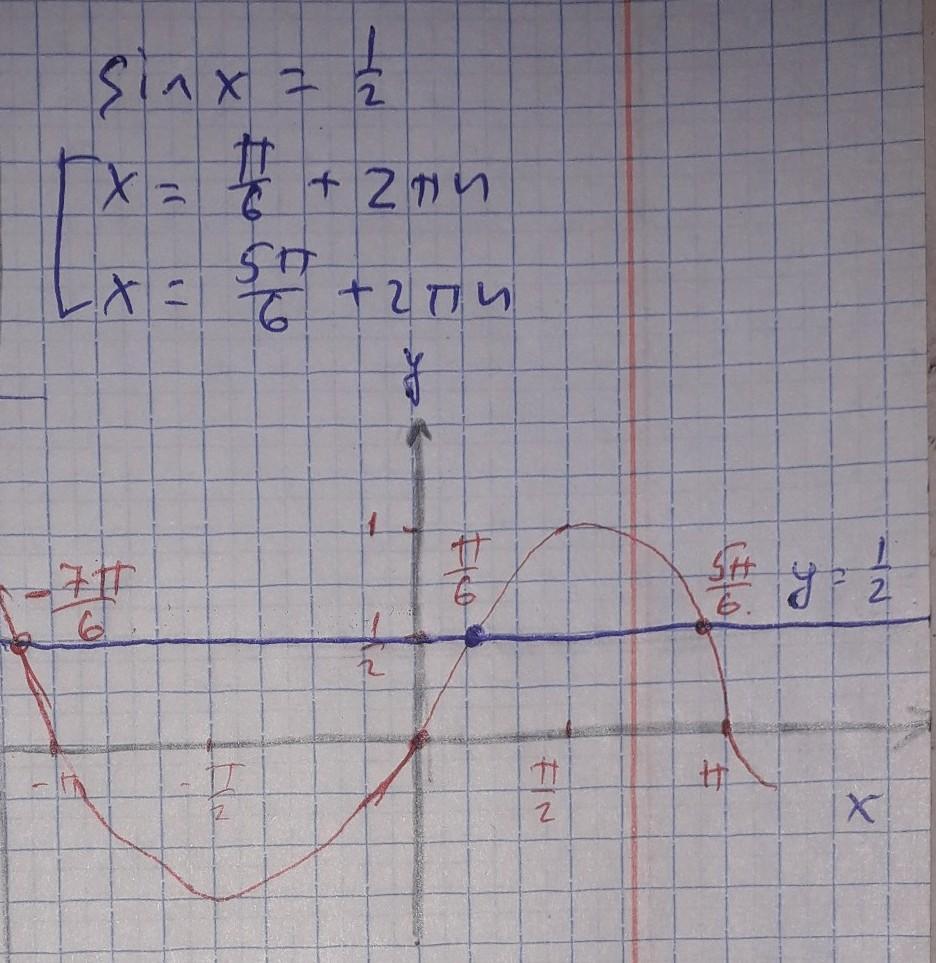 sin x = 1/2
x = π/6 + 2πn
x = 5π/6 + 2πn
y
1
π/6
5π/6
y = 1/2
-7π/6
1/2
-π
-π/2
π/2
π
x